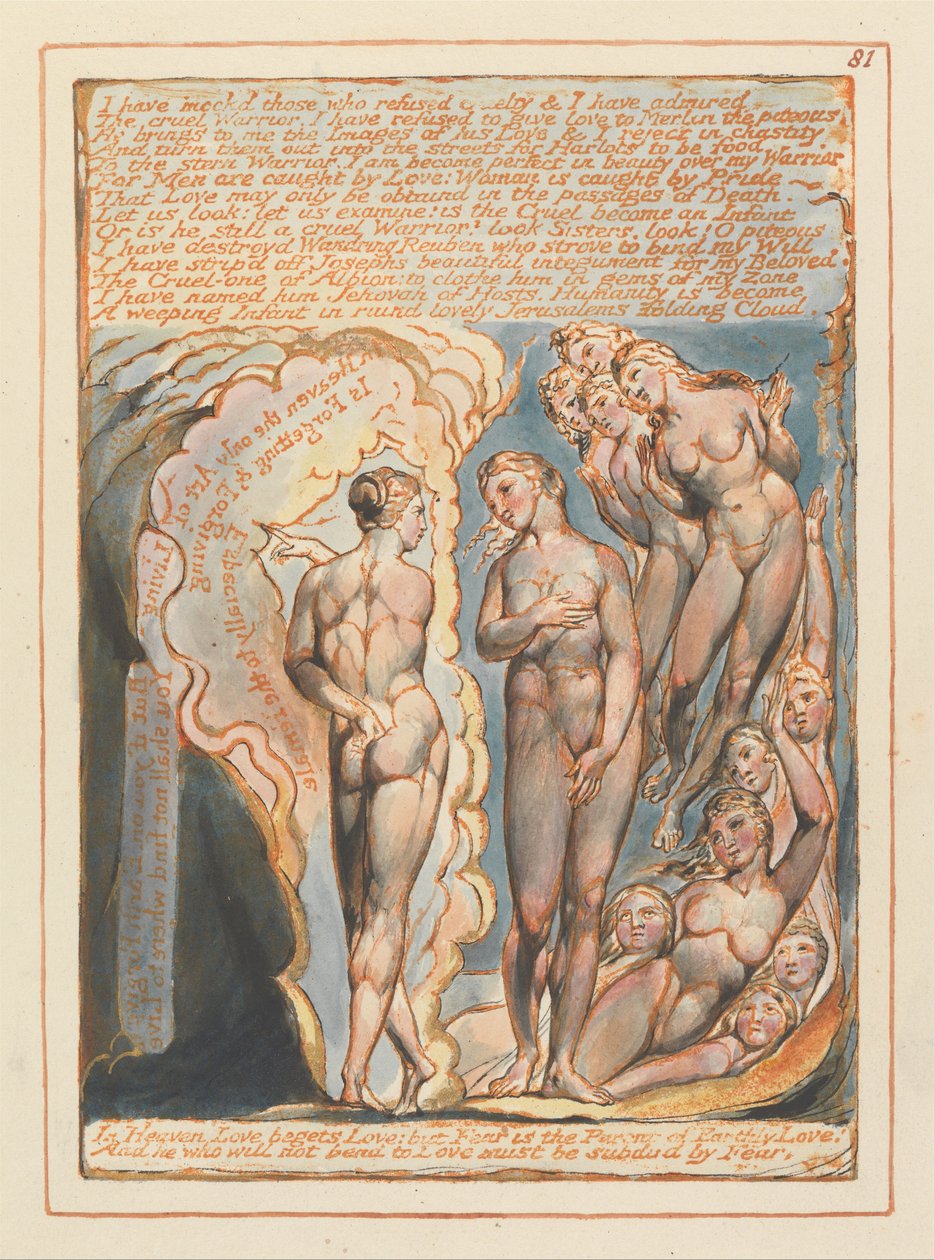 81
I have mockd those who refused cruelty & I have admired
The cruel Warrior. I have refused to give love to Merlin the piteous.
He brings to me the Images of his Love & I reject in chastity
And turn them out into the streets for Harlots to be food
To the stern Warrior. I am become perfect in beauty over my Warrior
For Men are caught by Love: Woman is caught by Pride
That Love may only be obtaind in the passages of Death.
Let us look: let us examine: is the Cruel become an Infant
Or is he still a cruel Warrior? look Sisters, look! O piteous
I have destroyd Wandring Reuben who strove to bind my Will
I have stripd off Josephs beautiful integument for my Beloved.
The Cruel-one of Albion: to clothe him in gems of my Zone
I have named him Jehovah of Hosts. Humanity is become
A weeping Infant in ruind lovely Jerusalems folding Cloud.
In Heaven the only Art of Living
Is Forgetting & Forgiving
Especially to the Female
But if you on Earth Forgive
You shall not find where to Live
In Heaven Love begets Love: but Fear is the Parent of Earthly Love!
And he who will not bend to Love must be subdud by Fear.